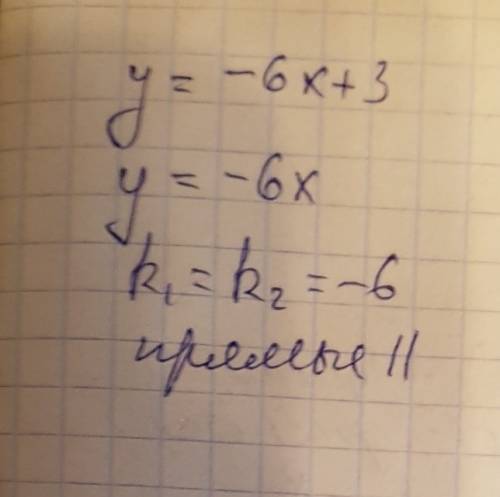 y = -6x+3
y = -6x
k₁ = k₂ = -6
прямые ||